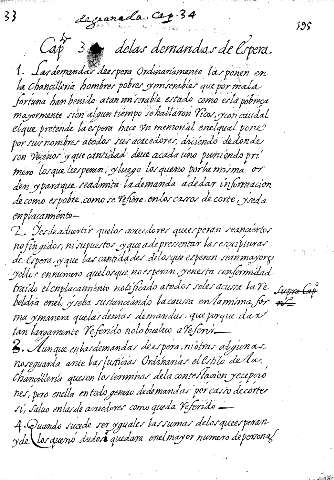 33
de granada. Cap. 34
195
Capº 3 de las demandas de Espera.
1. Las demandas de espera Ordinariamente las ponen en
la Chancilleria hombres pobres, y miserables que por mala
fortuna han venido a tan miserable estado como es la pobreza
mayormente si en algun tiempo se hallaron Ricos, y con caudal
el que pretende la espera hace Un memorial en el qual pone
por sus nombres a todos sus acreedores, diciendo de donde
son Vezinos, y que cantidad deve a cada uno puniendo pri
mero los que le esperan, y luego los que no por la misma or
den y para que se admita la demanda a de dar informacion
de como es pobre, como se Refiere, en los casos de corte, y se da
emplaçamiento
2. Y es de advertir que los acreedores que esperan se an ciertos
no fingidos, ni supuestos, y que a de presentar las escrituras
de Espera, y que las cantidades de los que esperan sean mayores
y ellos en numero que los que no esperan, y en esta conformidad
traido el emplaçamiento notificado a todos se les acussa la Re
beldia en el, y se ba sustanciando la causa en la misma for
ma y manera que las demas demandas, que porque citar
tan largamente Referido no lo buelbo a Referir
supra Cap.
3. Aunque en las demandas de espera, ni otras algunas,
no se guarda ante las Justicias Ordinarias el Estilo de la
Chancilleria que son los terminos de la contestacion y excepcio
nes, pero en ella en todo genero de demandas por caso de corte
si, salvo en las de acreedores como queda Referido
4. Quando sucede ser yguales las sumas de los que esperan
y de los que no dudose quedara en el mayor numero de personas